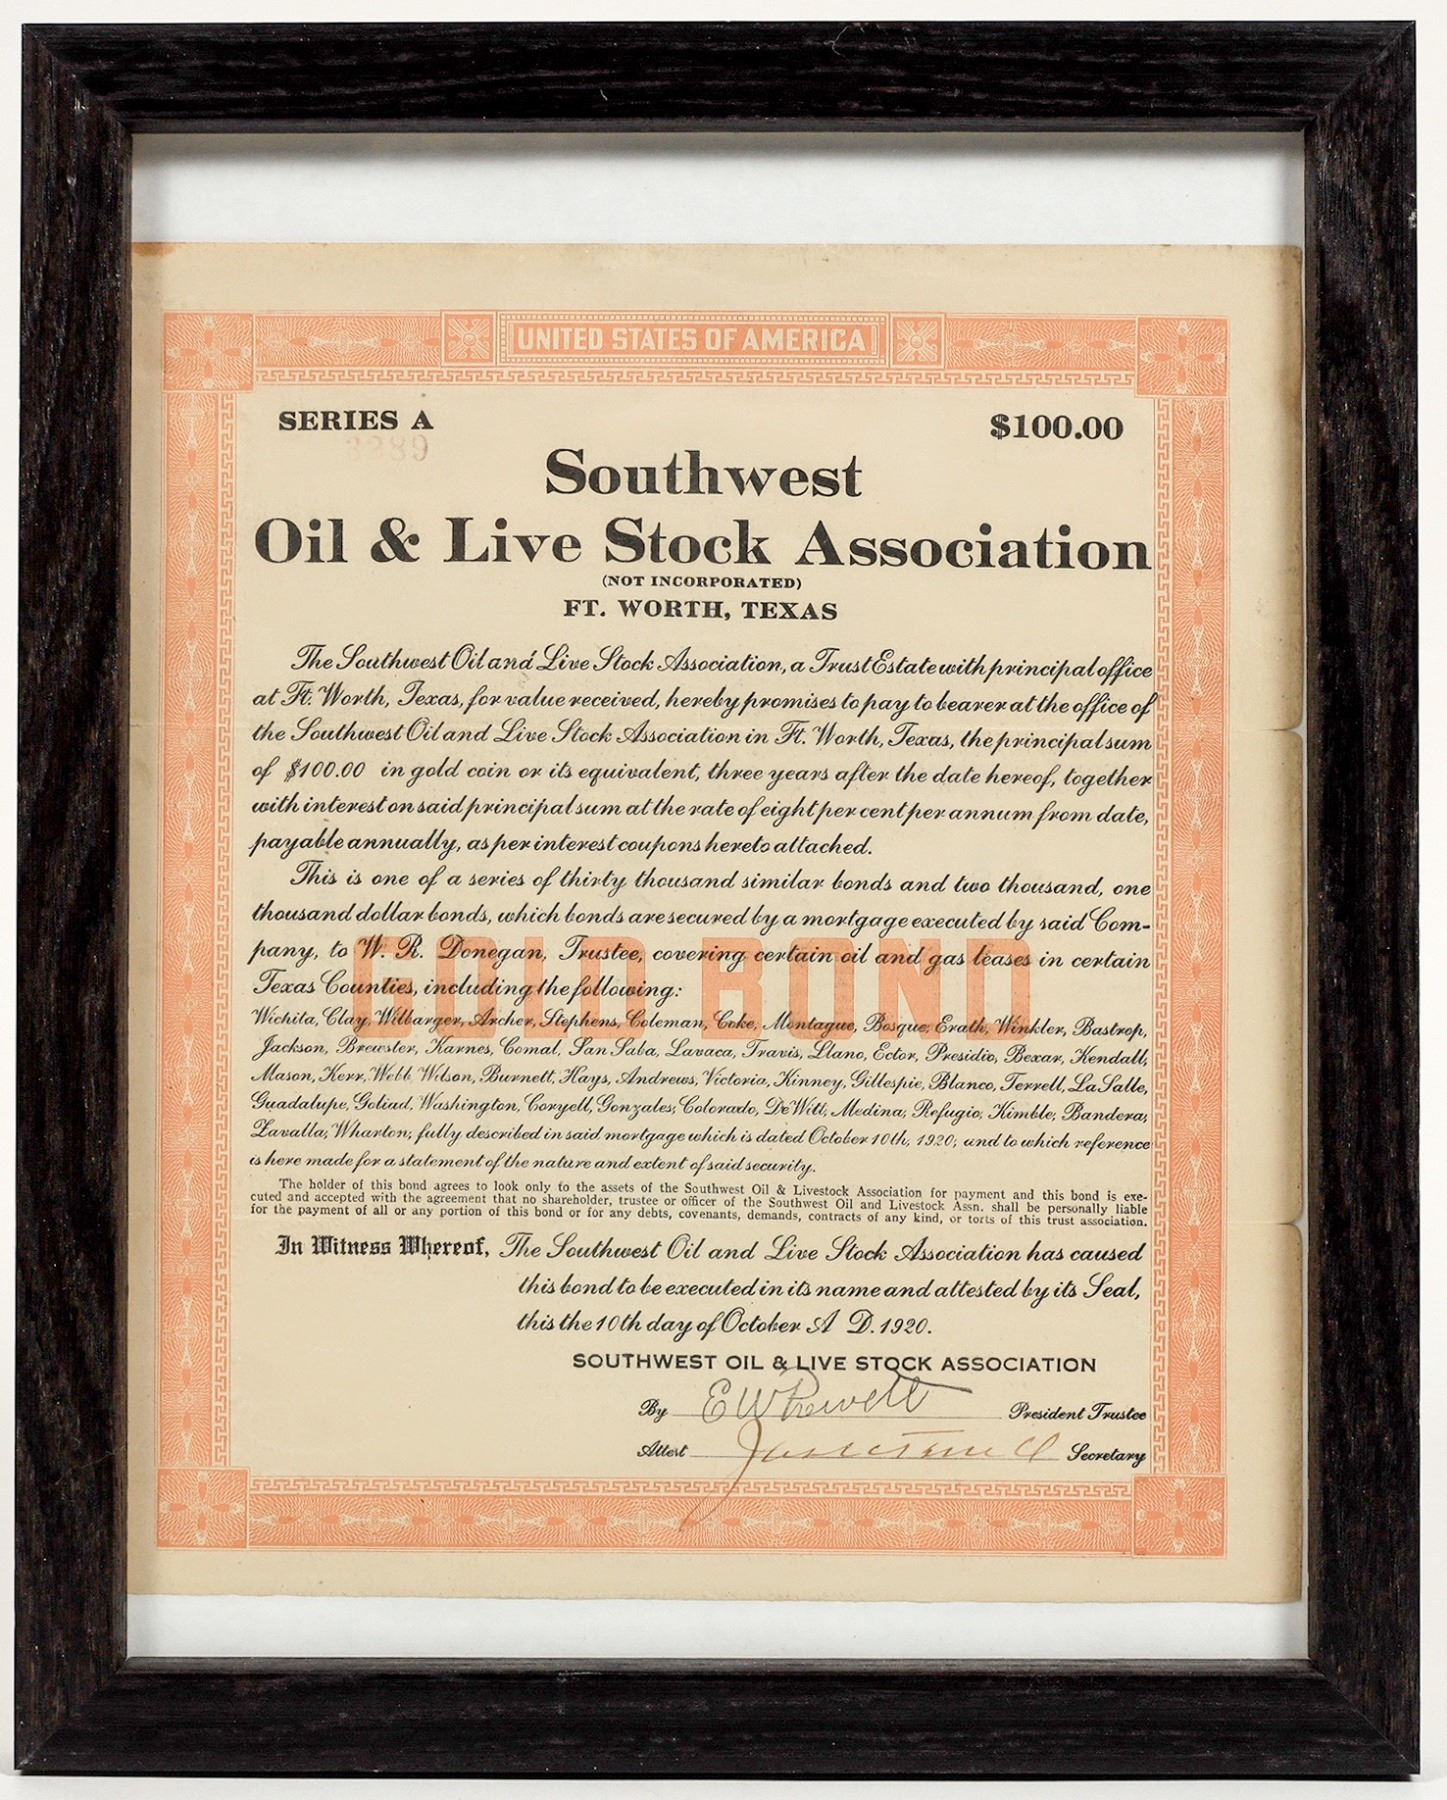 UNITED STATES OF AMERICA
SERIES A
$100.00
Southwest
Oil & Live Stock Association
(NOT INCORPORATED)
FT. WORTH, TEXAS
The Southwest Oil and Live Stock Association, a Trust Estate with principal office
at Ft. Worth, Texas, for value received, hereby promises to pay to bearer at the office of
the Southwest Oil and Live Stock Association in Ft. Worth, Texas, the principal sum
of $100.00 in gold coin or its equivalent, three years after the date hereof, together
with interest on said principal sum at the rate of eight per cent per annum from date,
payable annually, as per interest coupons hereto attached.
This is one of a series of thirty thousand similar bonds and two thousand, one
thousand dollar bonds, which bonds are secured by a mortgage executed by said Com-
pany, to W. R. Donegan, Trustee, covering certain oil and gas leases in certain
Texas Counties, including the following:
GOLD BOND
Wichita, Clay, Wilbarger, Archer, Stephens, Coleman, Coke, Montague, Bosque, Erath, Winkler, Bastrop,
Jackson, Brewster, Karnes, Comal, San Saba, Lavaca, Travis, Llano, Ector, Presidio, Bexar, Kendall,
Mason, Kerr, Webb, Wilson, Burnett, Hays, Andrews, Victoria, Kinney, Gillespie, Blanco, Terrell, La Salle,
Guadalupe, Goliad, Washington, Coryell, Gonzales, Colorado, De Witt, Medina, Refugio, Kimble, Bandera,
Zavalla, Wharton; fully described in said mortgage which is dated October 10th, 1920, and to which reference
is here made for a statement of the nature and extent of said security.
The holder of this bond agrees to look only to the assets of the Southwest Oil & Livestock Association for payment and this bond is exe-
cuted and accepted with the agreement that no shareholder, trustee or officer of the Southwest Oil and Livestock Assn. shall be personally liable
for the payment of all or any portion of this bond or for any debts, covenants, demands, contracts of any kind, or torts of this trust association.
In Witness Whereof, The Southwest Oil and Live Stock Association has caused
this bond to be executed in its name and attested by its Seal,
this the 10th day of October A D. 1920.
SOUTHWEST OIL & LIVE STOCK ASSOCIATION
By E W Prewett President Trustee
Attest Secretary